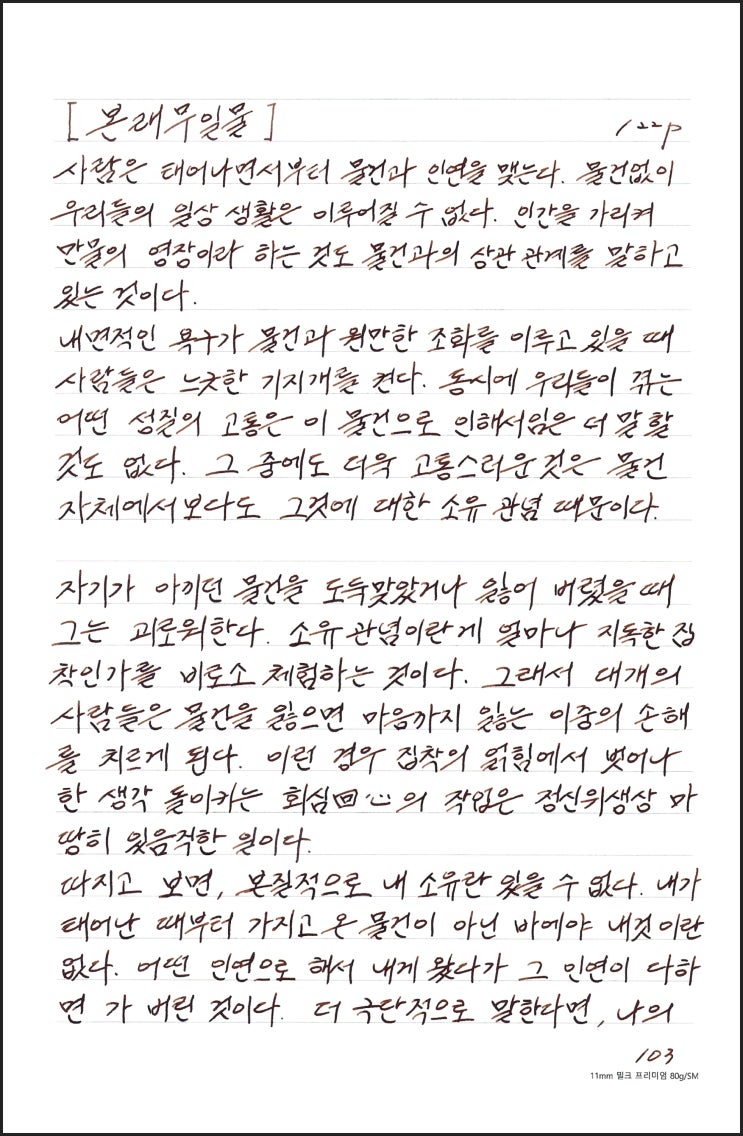 [ 본래무일물 ] 122p
사람은 태어나면서부터 물건과 인연을 맺는다. 물건없이
우리들의 일상 생활은 이루어질 수 없다. 인간을 가리켜
만물의 영장이라 하는 것도 물건과의 상관 관계를 말하고
있는 것이다.
내면적인 욕구가 물건과 원만한 조화를 이루고 있을 때
사람들은 느긋한 기지개를 켠다. 동시에 우리들이 겪는
어떤 성질의 고통은 이 물건으로 인해서임은 더 말할
것도 없다. 그 중에도 더욱 고통스러운 것은 물건
자체에서보다도 그것에 대한 소유 관념 때문이다.
자기가 아끼던 물건을 도둑맞았거나 잃어 버렸을 때
그는 괴로워한다. 소유 관념이란게 얼마나 지독한 집
착인가를 비로소 체험하는 것이다. 그래서 대개의
사람들은 물건을 잃으면 마음까지 잃는 이중의 손해
를 치르게 된다. 이런 경우 집착의 얽힘에서 벗어나
한 생각 돌이키는 회심回心의 작업은 정신위생상 마
땅히 있음직한 일이다.
따지고 보면, 본질적으로 내 소유란 있을 수 없다. 내가
태어난 때부터 가지고 온 물건이 아닌 바에야 내것이란
없다. 어떤 인연으로 해서 내게 왔다가 그 인연이 다하
면 가 버린 것이다. 더 극단적으로 말한다면, 나의
103
11mm 밀크 프리미엄 80g/SM